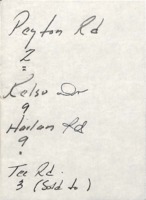 Peyton Rd
2
=
Kelso Dr
9
Harlan Rd
9
.
Tee Rd.
3 (Sold to)